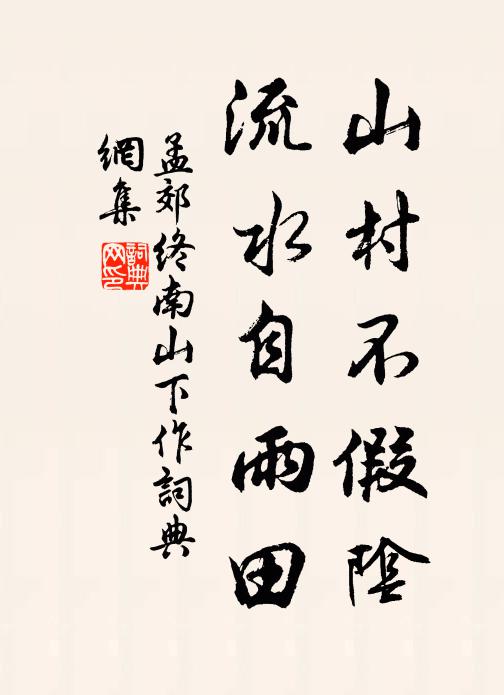 山村不假陰
流水自雨田
孟郊終南山下作詞典
網集
詞典
网印